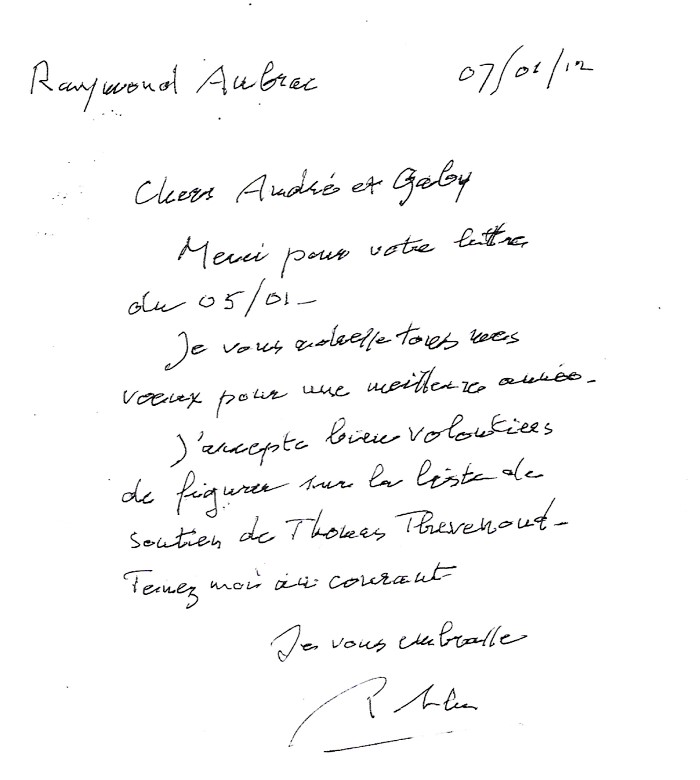 Raymond Aubrac 07/01/12
Chers André et Gaby
Merci pour votre lettre
du 05/01_
Je vous adresse tous mes
voeux pour une meilleure année_
J'accepte bien volontiers
de figurer sur la liste de
soutien de Thomas Thevenoud_
Tenez moi au courant
Je vous embrasse